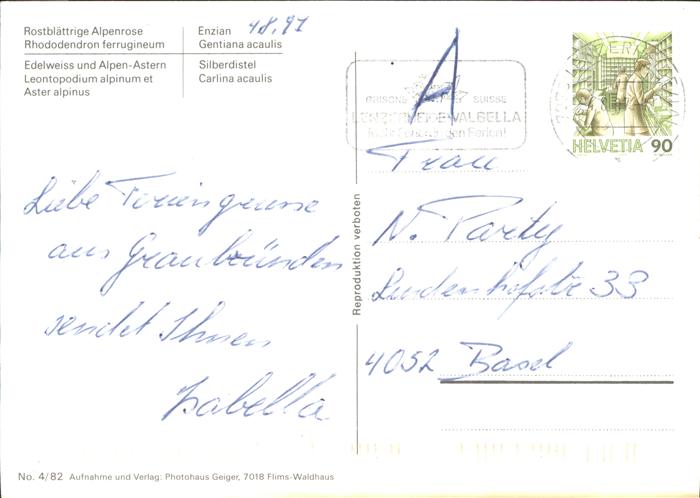 Rostblättrige Alpenrose
Rhododendron ferrugineum
Enzian
Gentiana acaulis
Edelweiss und Alpen-Astern
Leontopodium alpinum et
Aster alpinus
Silberdistel
Carlina acaulis
4.8.91
A
GRISONS SUISSE
LENZERHEIDE-VALBELLA
HELVETIA 90
Liebe Feriengrüsse
aus Graubünden
sendet Ihnen
Isabella
Reproduktion verboten
Frau
N. Parity
Lindenhofstr 33
4052 Basel
No. 4/82 Aufnahme und Verlag: Photohaus Geiger, 7018 Flims-Waldhaus